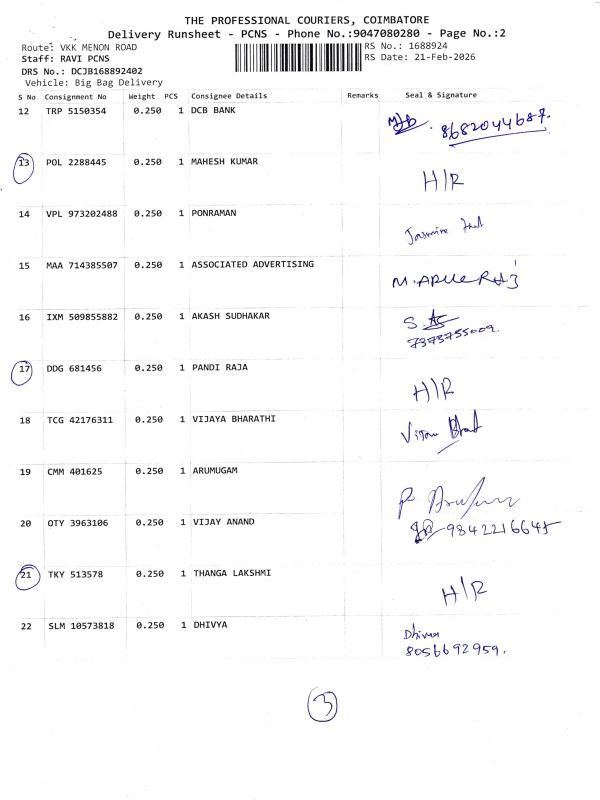 THE PROFESSIONAL COURIERS, COIMBATORE
Delivery Runsheet - PCNS - Phone No.:9047080280 - Page No.:2
Route: VKK MENON ROAD RS No.: 1688924
Staff: RAVI PCNS RS Date: 21-Feb-2026
DRS No.: DCJB168892402
Vehicle: Big Bag Delivery
S No Consignment No Weight PCS Consignee Details Remarks Seal & Signature
12 TRP 5150354 0.250 1 DCB BANK 8682044687.
13 POL 2288445 0.250 1 MAHESH KUMAR H/R
14 VPL 973202488 0.250 1 PONRAMAN Jasmine
15 MAA 714385507 0.250 1 ASSOCIATED ADVERTISING
16 IXM 509855882 0.250 1 AKASH SUDHAKAR S
7373755009
17 DDG 681456 0.250 1 PANDI RAJA H/R
18 TCG 42176311 0.250 1 VIJAYA BHARATHI
19 CMM 401625 0.250 1 ARUMUGAM
20 OTY 3963106 0.250 1 VIJAY ANAND 9842216645
21 TKY 513578 0.250 1 THANGA LAKSHMI H/R
22 SLM 10573818 0.250 1 DHIVYA Dhivya
8056692959.
3